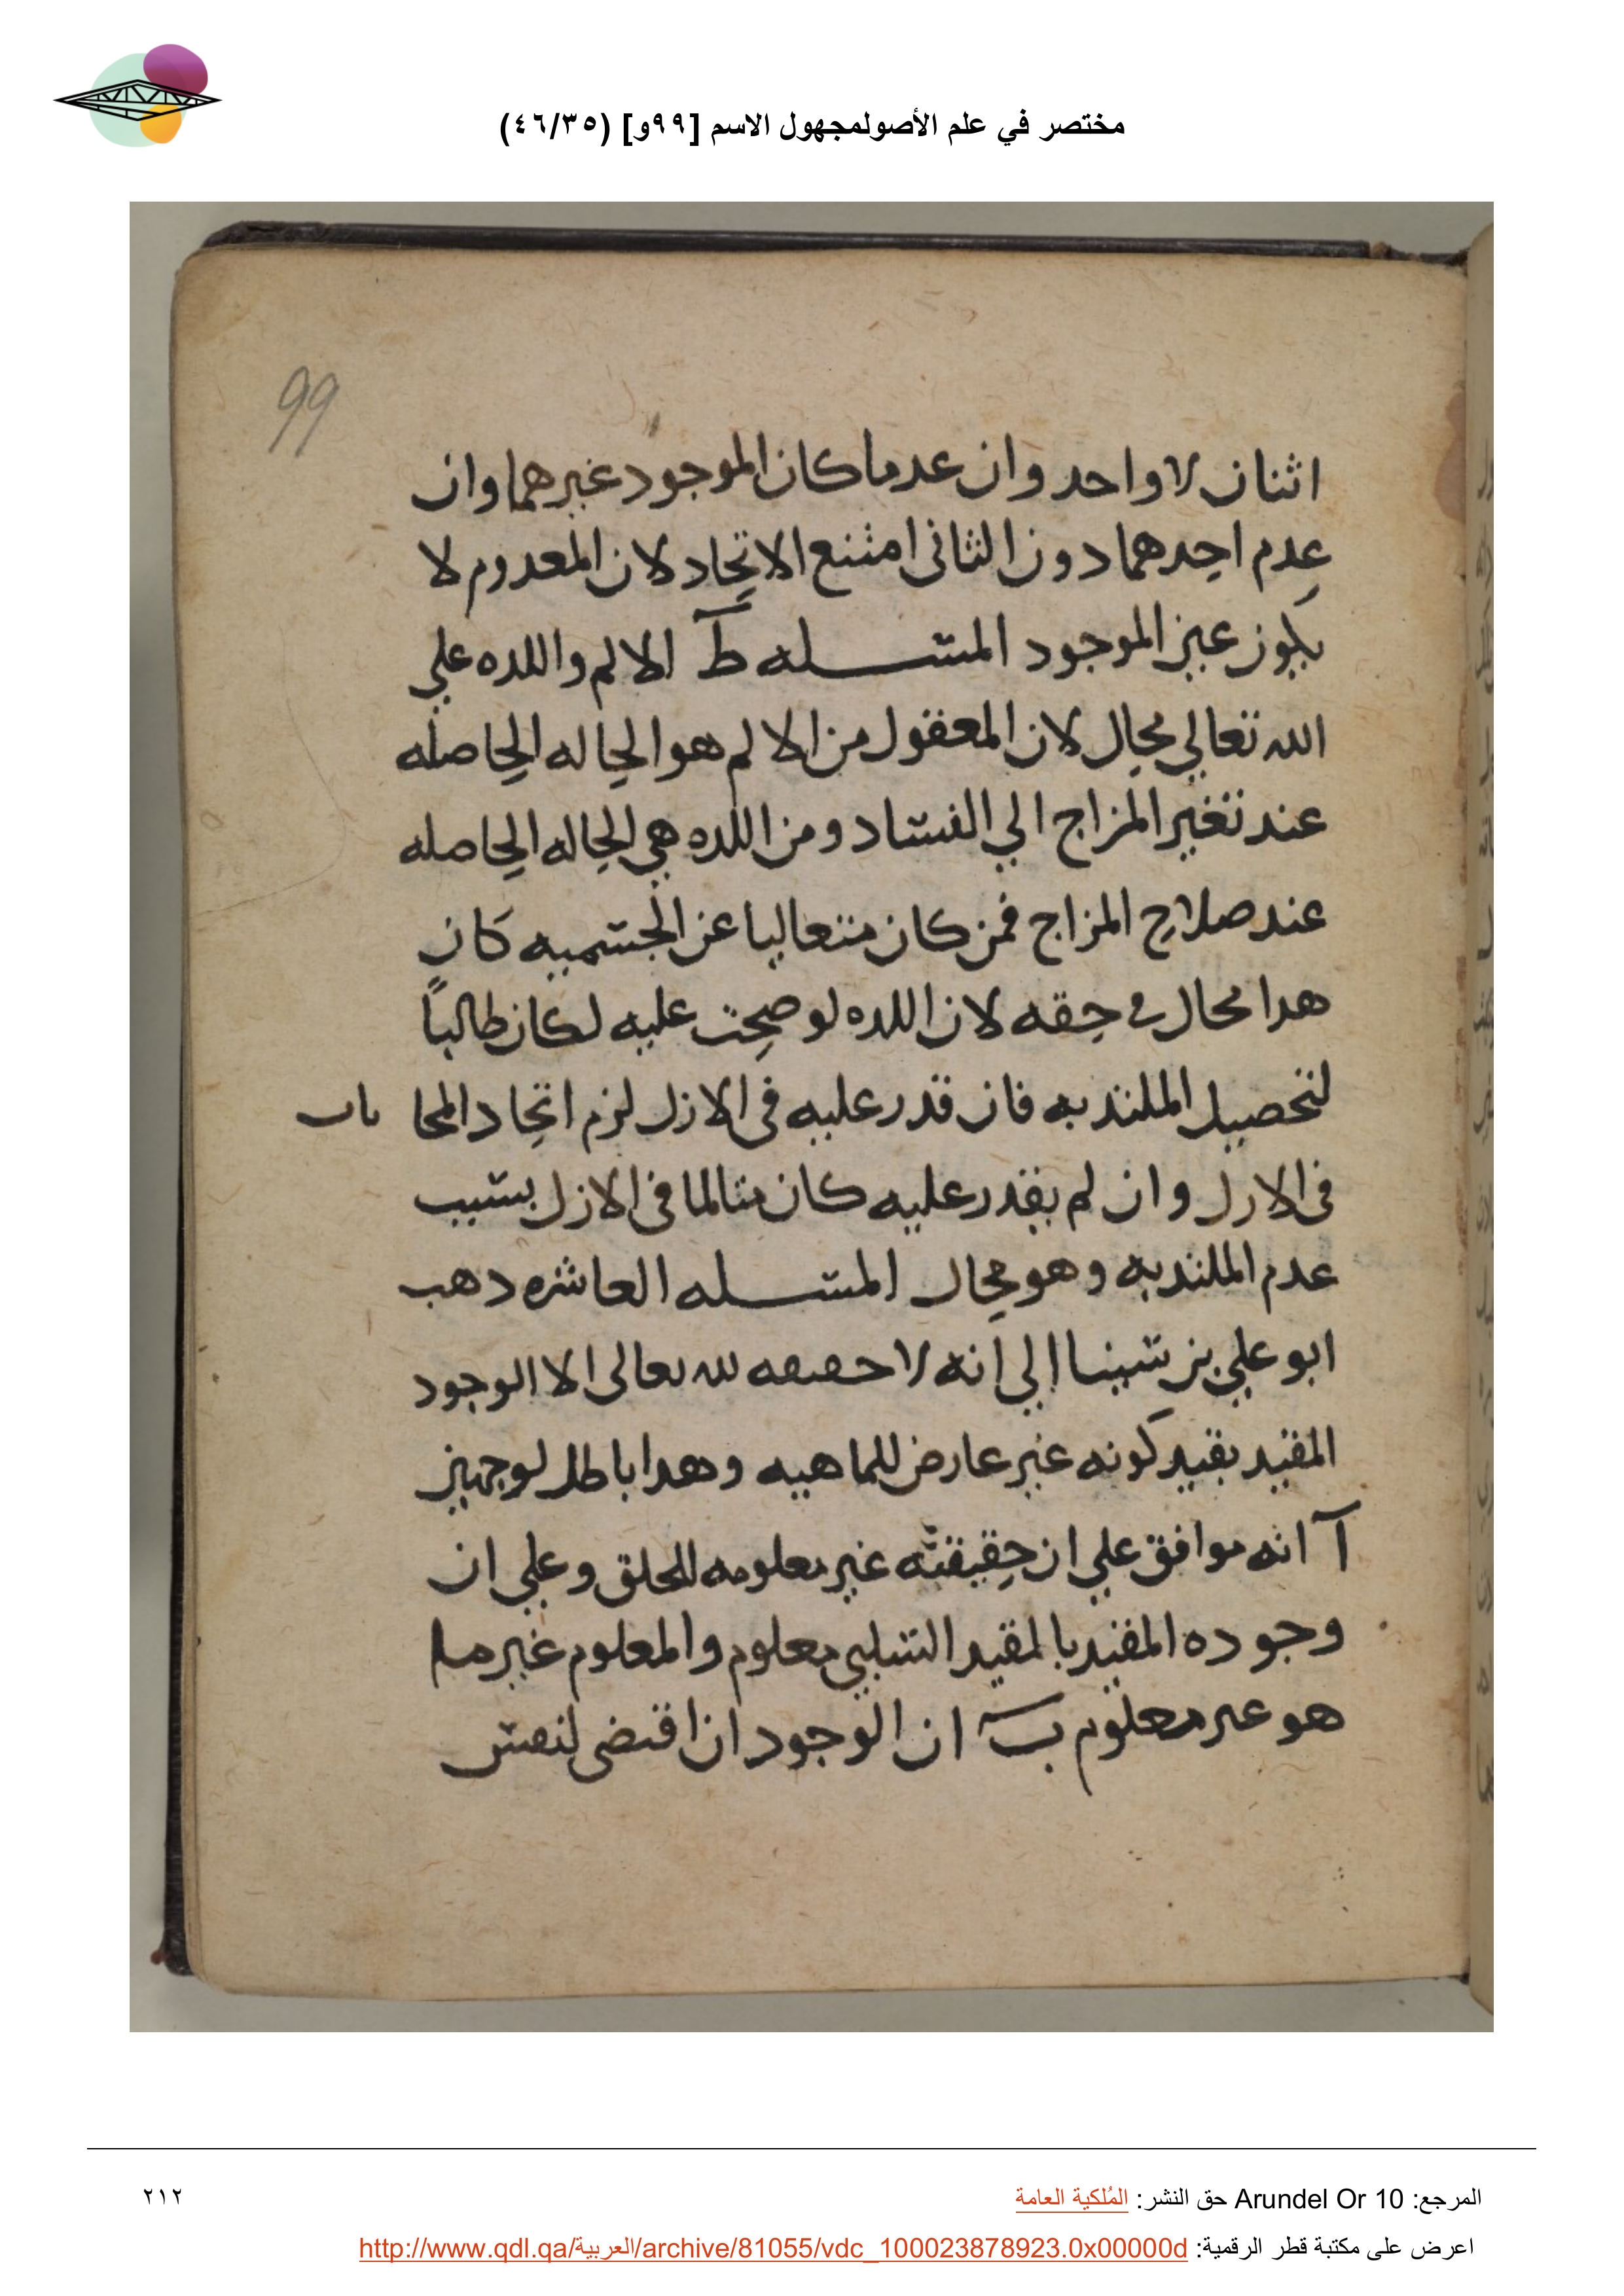 مختصر في علم الأصولمجهول الاسم [٩٩و] (٤٦/٣٥)
99
اثنان لا واحد وان عدما كان الموجود غيرهما وان
عدم احدهما دون الثانى امتنع الاتحاد لان المعدوم لا
يكون عين الموجود المسله ط الالم واللده علي
الله تعالي محال لان المعقول من الالم هو الحاله الحاصله
عند تغير المزاج الي الفساد ومن اللده هي الحاله الحاصله
عند صلاح المزاج فمن كان متعاليا عن الجسميه كان
هدا محال في حقه لان اللده لو صحت عليه لكان طالباً
لتحصيل الملتد به فان قدر عليه فى الازل لزم اتحاد المحا بات
فى الازل وان لم يقدر عليه كان متالما فى الازل بسبب
عدم الملتد به وهو محال المسله العاشره دهب
ابو علي بن سينا الي انه لا حقيقه لله تعالى الا الوجود
المقيد بقيد كونه غير عارض للماهيه وهدا باطل لوجهين
آ انه موافق علي ان حقيقته غير معلومه للخلق وعلي ان
وجوده المقيد بالمقيد السلبي معلوم والمعلوم غير ما
هو غير معلوم ب ان الوجود ان اقتضى لنفس
المرجع: Arundel Or 10 حق النشر: المُلكية العامة
٢١٢
اعرض على مكتبة قطر الرقمية: http://www.qdl.qa/العربية/archive/81055/vdc_100023878923.0x00000d